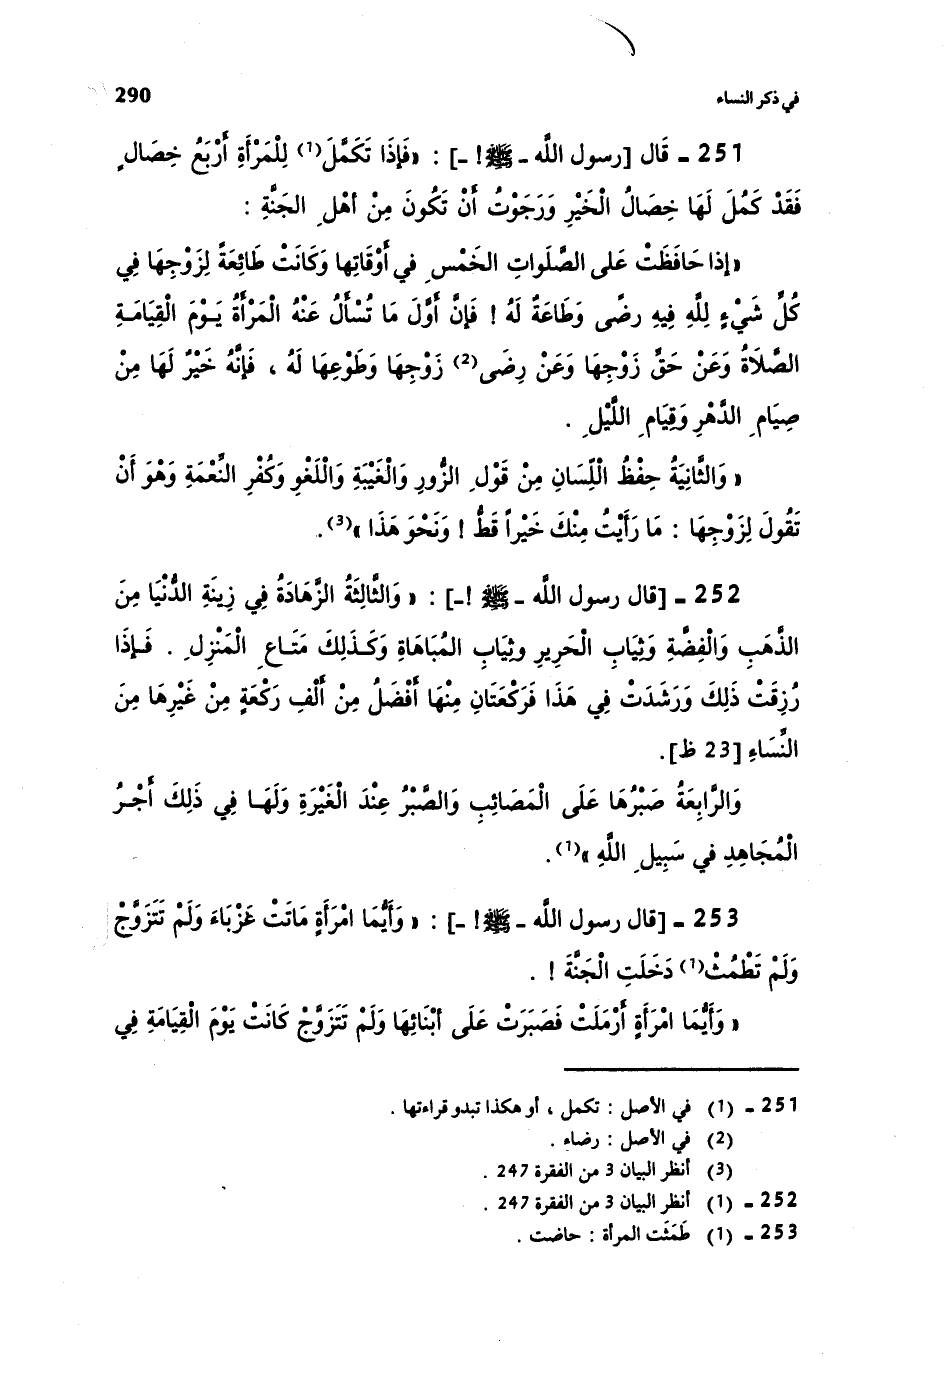 في ذكر النساء 290
251 ـ قَال [رسول اللَّه ـ ﷺ! ـ] : «فَإِذَا تَكَمَّلَ(1) لِلْمَرْأَةِ أَرْبَعُ خِصَالٍ
فَقَدْ كَمُلَ لَهَا خِصَالُ الْخَيْرِ وَرَجَوْتُ أَنْ تَكُونَ مِنْ أهْلِ الجَنَّةِ :
«إذا حَافَظَتْ عَلى الصَّلَواتِ الخَمْسِ في أوْقَاتِها وَكَانَتْ طَائِعَةً لِزَوْجِهَا فِي
كُلِّ شَيْءٍ لِلَّهِ فِيهِ رضًى وَطَاعَةٌ لَهُ ! فَإِنَّ أَوَّلَ مَا تُسْأَلُ عَنْهُ الْمَرْأَةُ يَـوْمَ الْقِيَامَـةِ
الصَّلَاةُ وَعَنْ حَقِّ زَوْجِهَا وَعَنْ رِضَى(2) زَوْجِهَا وَطَوْعِهَا لَهُ ، فَإِنَّهُ خَيْرٌ لَهَا مِنْ
صِيَامِ الدَّهْرِ وَقِيَامِ اللَّيْلِ .
« وَالثَّانِيَةُ حِفْظُ اللِّسَانِ مِنْ قَوْلِ الزُّورِ وَالْغَيْبَةِ وَاللَّغْوِ وَكُفْرِ النَّعْمَةِ وَهْوَ أَنْ
تَقُولَ لِزَوْجِهَا : مَا رَأَيْتُ مِنْكَ خَيْراً قَطُّ ! وَنَحْوَ هَذَا »(3).
252 ـ [قال رسول اللَّه ـ ﷺ !ـ] : « وَالثَّالِثَةُ الزَّهَادَةُ فِي زِينَةِ الدُّنْيَا مِنَ
الذَّهَبِ وَالْفِضَّةِ وَثِيَابِ الْحَرِيرِ وثِيَابِ المُبَاهَاةِ وَكَـذَلِكَ مَتَـاعِ الْمَنْزِلِ . فَـإِذَا
رُزِقَتْ ذَلِكَ وَرَشَدَتْ فِي هَذَا فَرَكْعَتَانِ مِنْهَا أَفْضَلُ مِنْ أَلْفِ رَكْعَةٍ مِنْ غَيْرِهَا مِنَ
النِّسَاءِ [23 ظ].
وَالرَّابِعَةُ صَبْرُهَا عَلَى الْمَصَائِبِ وَالصَّبْرُ عِنْدَ الْغَيْرَةِ وَلَهَـا فِي ذَلِكَ أَجْـرُ
الْمُجَاهِدِ في سَبِيلِ اللَّهِ »(1).
253 ـ [قال رسول اللَّه ـ ﷺ! ـ] : « وَأَيُّمَا امْرَأَةٍ مَاتَتْ عَزْبَاءَ وَلَمْ تَتَزَوَّجْ
وَلَمْ تَطْمُثْ(1) دَخَلَتِ الْجَنَّةَ ! .
« وَأَيُّمَا امْرَأَةٍ أَرْمَلَتْ فَصَبَرَتْ عَلَى أبْنَائِهَا وَلَمْ تَتَزَوَّجْ كَانَتْ يَوْمَ الْقِيَامَةِ فِي
251 ـ (1) في الأصل : تكمل ، أو هكذا تبدو قراءتها .
(2) في الأصل : رضاء .
(3) أنظر البيان 3 من الفقرة 247 .
252 ـ (1) أنظر البيان 3 من الفقرة 247 .
253 ـ (1) طَمَثَت المرأة : حاضت .